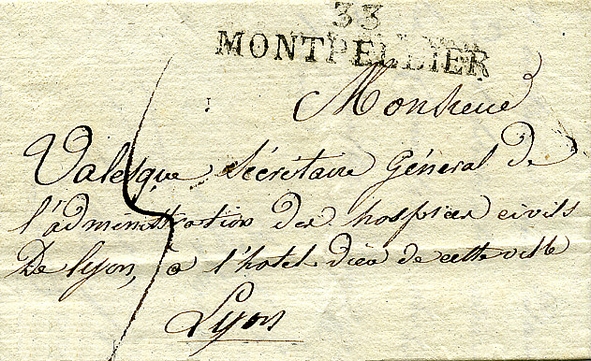 33
MONTPELLIER
Monsieur
Valesque Sécrétaire Général de
l'administration des hospices civils
De lyon, a l'hotel-dieu de cette ville
Lyon